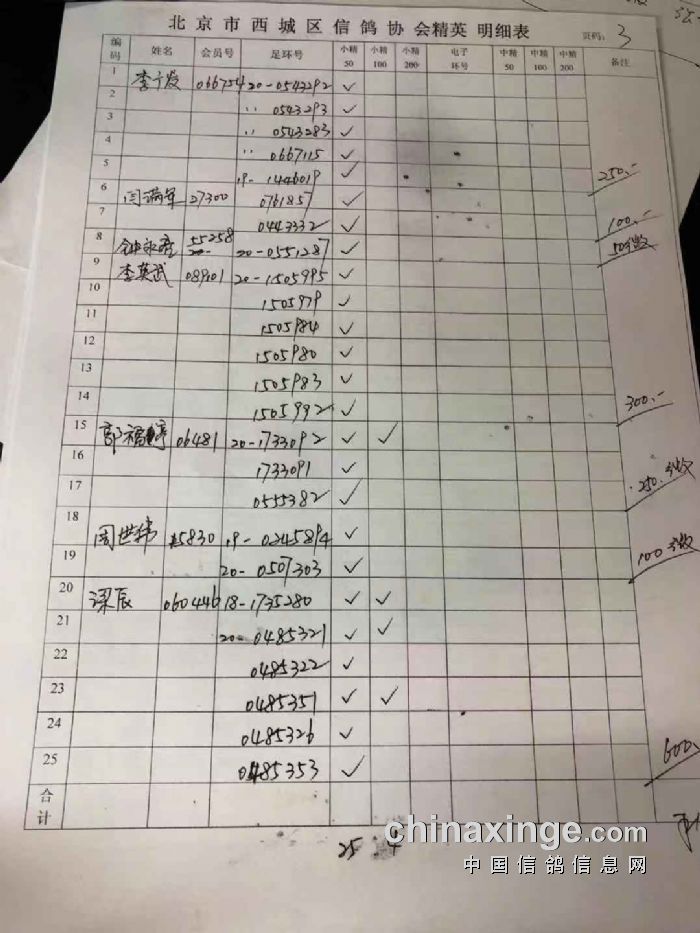 北京市西城区信鸽协会精英 明细表
页码: 3
编码 姓名 会员号 足环号 小精50 小精100 小精200 电子环号 中精50 中精100 中精200 备注
1 066754 20-0543292 ✓
2 〃 0543293 ✓
3 〃 0543283 ✓
4 〃 0667115 ✓
5 19-1446019 ✓ 250.-
6 闫满军 27300 0761857 ✓
7 0443332 ✓ 100.-
8 55258 20-0551287 ✓
9 李英武 089101 20-1505995 ✓
10 1505979 ✓
11 1505984 ✓
12 1505980 ✓
13 1505983 ✓
14 1505992 ✓ 300.-
15 06481 20-1733092 ✓ ✓
16 1733091 ✓
17 0555382 ✓ 250.
18 周世伟 5830 19-0245894 ✓
19 20-0507303 ✓ 100
20 梁辰 060446 18-1735280 ✓ ✓
21 20-0485321 ✓ ✓
22 0485322 ✓
23 0485351 ✓ ✓
24 0485326 ✓
25 0485353 ✓ 600.
合计
25 4
chinaxinge.com
中国信鸽信息网